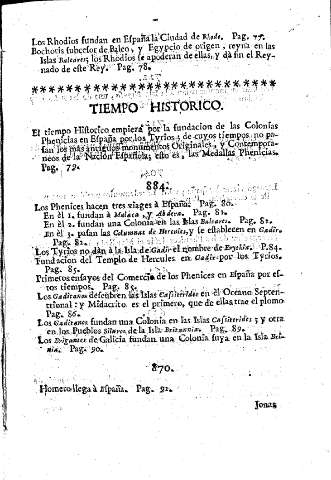 Los Rhodios fundan en España la Ciudad de Rhode. Pag. 75.
Bochoris subcesor de Baleo, y Egypcio de origen, reyna en las
Islas Baleares; los Rhodios se apoderan de ellas, y dà fin el Rey-
nado de este Rey. Pag. 78.
TIEMPO HISTORICO.
El tiempo Historico empieza por la fundacion de las Colonias
Phenicias en España por los Tyrios; de cuyos tiempos no pa-
san los mas antiguos monumentos Originales, y Contempora-
neos de la Nacion Española; esto es, las Medallas Phenicias.
Pag. 79.
884.
Los Phenices hacen tres viages à España. Pag. 80.
En èl 1. fundan à Malaca, y Abdera. Pag. 81.
En èl 2. fundan una Colonia en las Islas Baleares. Pag. 82.
En èl 3. pasan las Columnas de Hercules, y se establecen en Gadir.
Pag. 82.
Los Tyrios no dàn à la Isla de Gadir el nombre de Erythia. P.84.
Fundacion del Templo de Hercules en Gadir por los Tyrios.
Pag. 85.
Primeros ensayos del Comercio de los Phenices en España por es-
tos tiempos. Pag. 85.
Los Gaditanos descubren las Islas Cassiterides en el Oceano Septen-
trional; y Midacrito es el primero, que de ellas trae el plomo
Pag. 86.
Los Gaditanos fundan una Colonia en las Islas Cassiterides; y otra
en los Pueblos Siluros de la Isla Britannia. Pag. 89.
Los Brigantes de Galicia fundan una Colonia suya en la Isla Bri-
nia. Pag. 90.
870.
Homero llega à España. Pag. 92.
Jonas